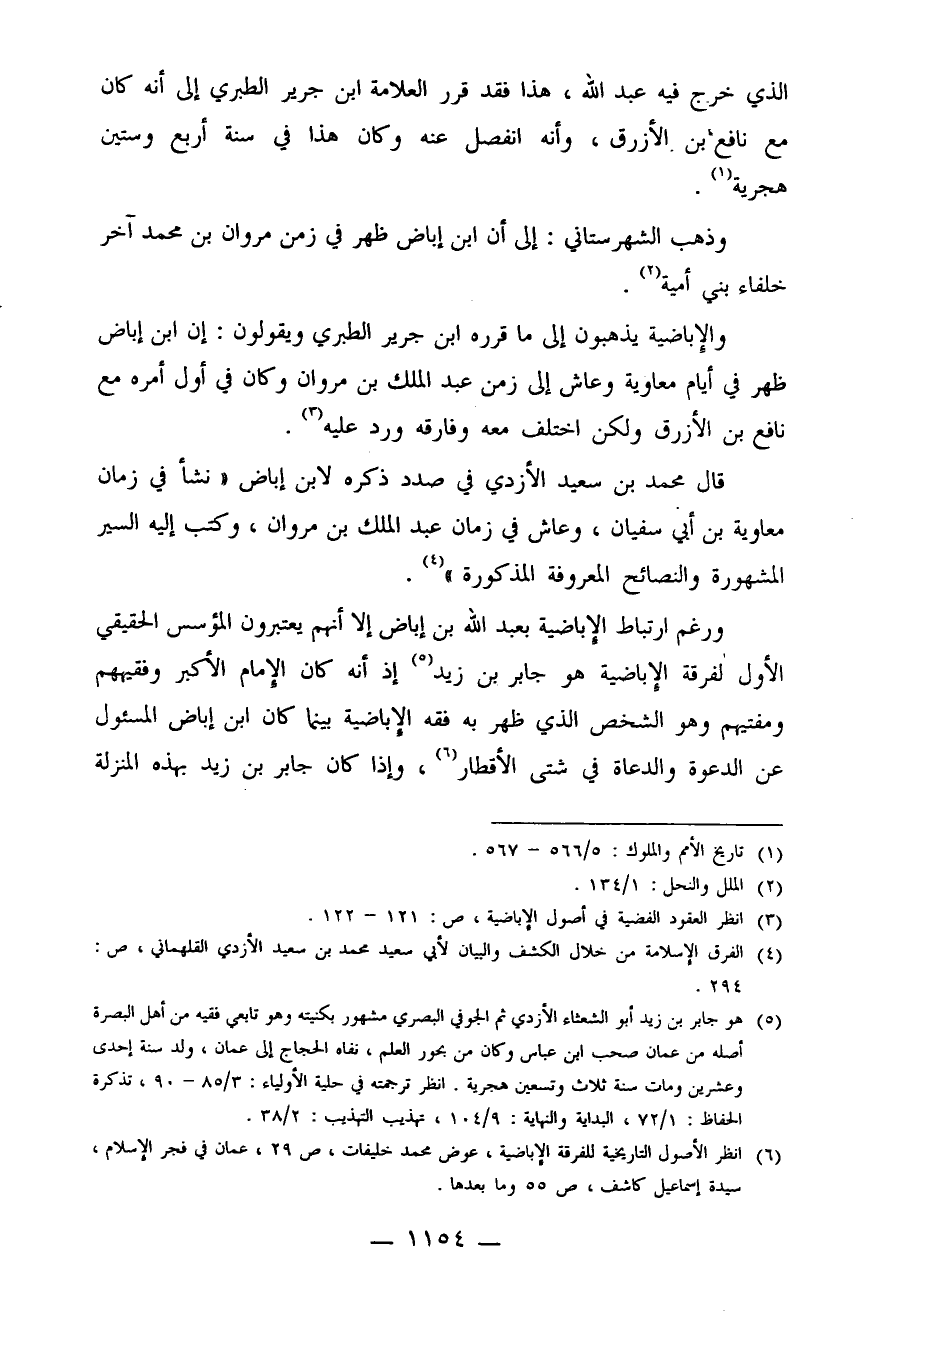 الذي خرج فيه عبد الله ، هذا فقد قرر العلامة ابن جرير الطبري إلى أنه كان
مع نافع بن الأزرق ، وأنه انفصل عنه وكان هذا في سنة أربع وستين
هجرية(١) .
وذهب الشهرستاني : إلى أن ابن إباض ظهر في زمن مروان بن محمد آخر
خلفاء بني أمية(٢) .
والإباضية يذهبون إلى ما قرره ابن جرير الطبري ويقولون : إن ابن إباض
ظهر في أيام معاوية وعاش إلى زمن عبد الملك بن مروان وكان في أول أمره مع
نافع بن الأزرق ولكن اختلف معه وفارقه ورد عليه(٣) .
قال محمد بن سعيد الأزدي في صدد ذكره لابن إباض « نشأ في زمان
معاوية بن أبي سفيان ، وعاش في زمان عبد الملك بن مروان ، وكتب إليه السير
المشهورة والنصائح المعروفة المذكورة »(٤) .
ورغم ارتباط الإباضية بعبد الله بن إباض إلا أنهم يعتبرون المؤسس الحقيقي
الأول لفرقة الإباضية هو جابر بن زيد(٥) إذ أنه كان الإمام الأكبر وفقيههم
ومفتيهم وهو الشخص الذي ظهر به فقه الإباضية بينما كان ابن إباض المسئول
عن الدعوة والدعاة في شتى الأقطار(٦) ، وإذا كان جابر بن زيد بهذه المنزلة
(١) تاريخ الأمم والملوك : ٥٦٦/٥ – ٥٦٧ .
(٢) الملل والنحل : ١٣٤/١ .
(٣) انظر العقود الفضية في أصول الإباضية ، ص : ١٢١ – ١٢٢ .
(٤) الفرق الإسلامة من خلال الكشف والبيان لأبي سعيد محمد بن سعيد الأزدي القلهماني ، ص :
٢٩٤ .
(٥) هو جابر بن زيد أبو الشعثاء الأزدي ثم الجوفي البصري مشهور بكنيته وهو تابعي فقيه من أهل البصرة
أصله من عمان صحب ابن عباس وكان من بحور العلم ، نفاه الحجاج إلى عمان ، ولد سنة إحدى
وعشرين ومات سنة ثلاث وتسعين هجرية . انظر ترجمته في حلية الأولياء : ٨٥/٣ – ٩٠ ، تذكرة
الحفاظ : ٧٢/١ ، البداية والنهاية : ١٠٤/٩ ، تهذيب التهذيب : ٣٨/٢ .
(٦) انظر الأصول التاريخية للفرقة الإباضية ، عوض محمد خليفات ، ص ٢٩ ، عمان في فجر الإسلام ،
سيدة إسماعيل كاشف ، ص ٥٥ وما بعدها .
— ١١٥٤ —